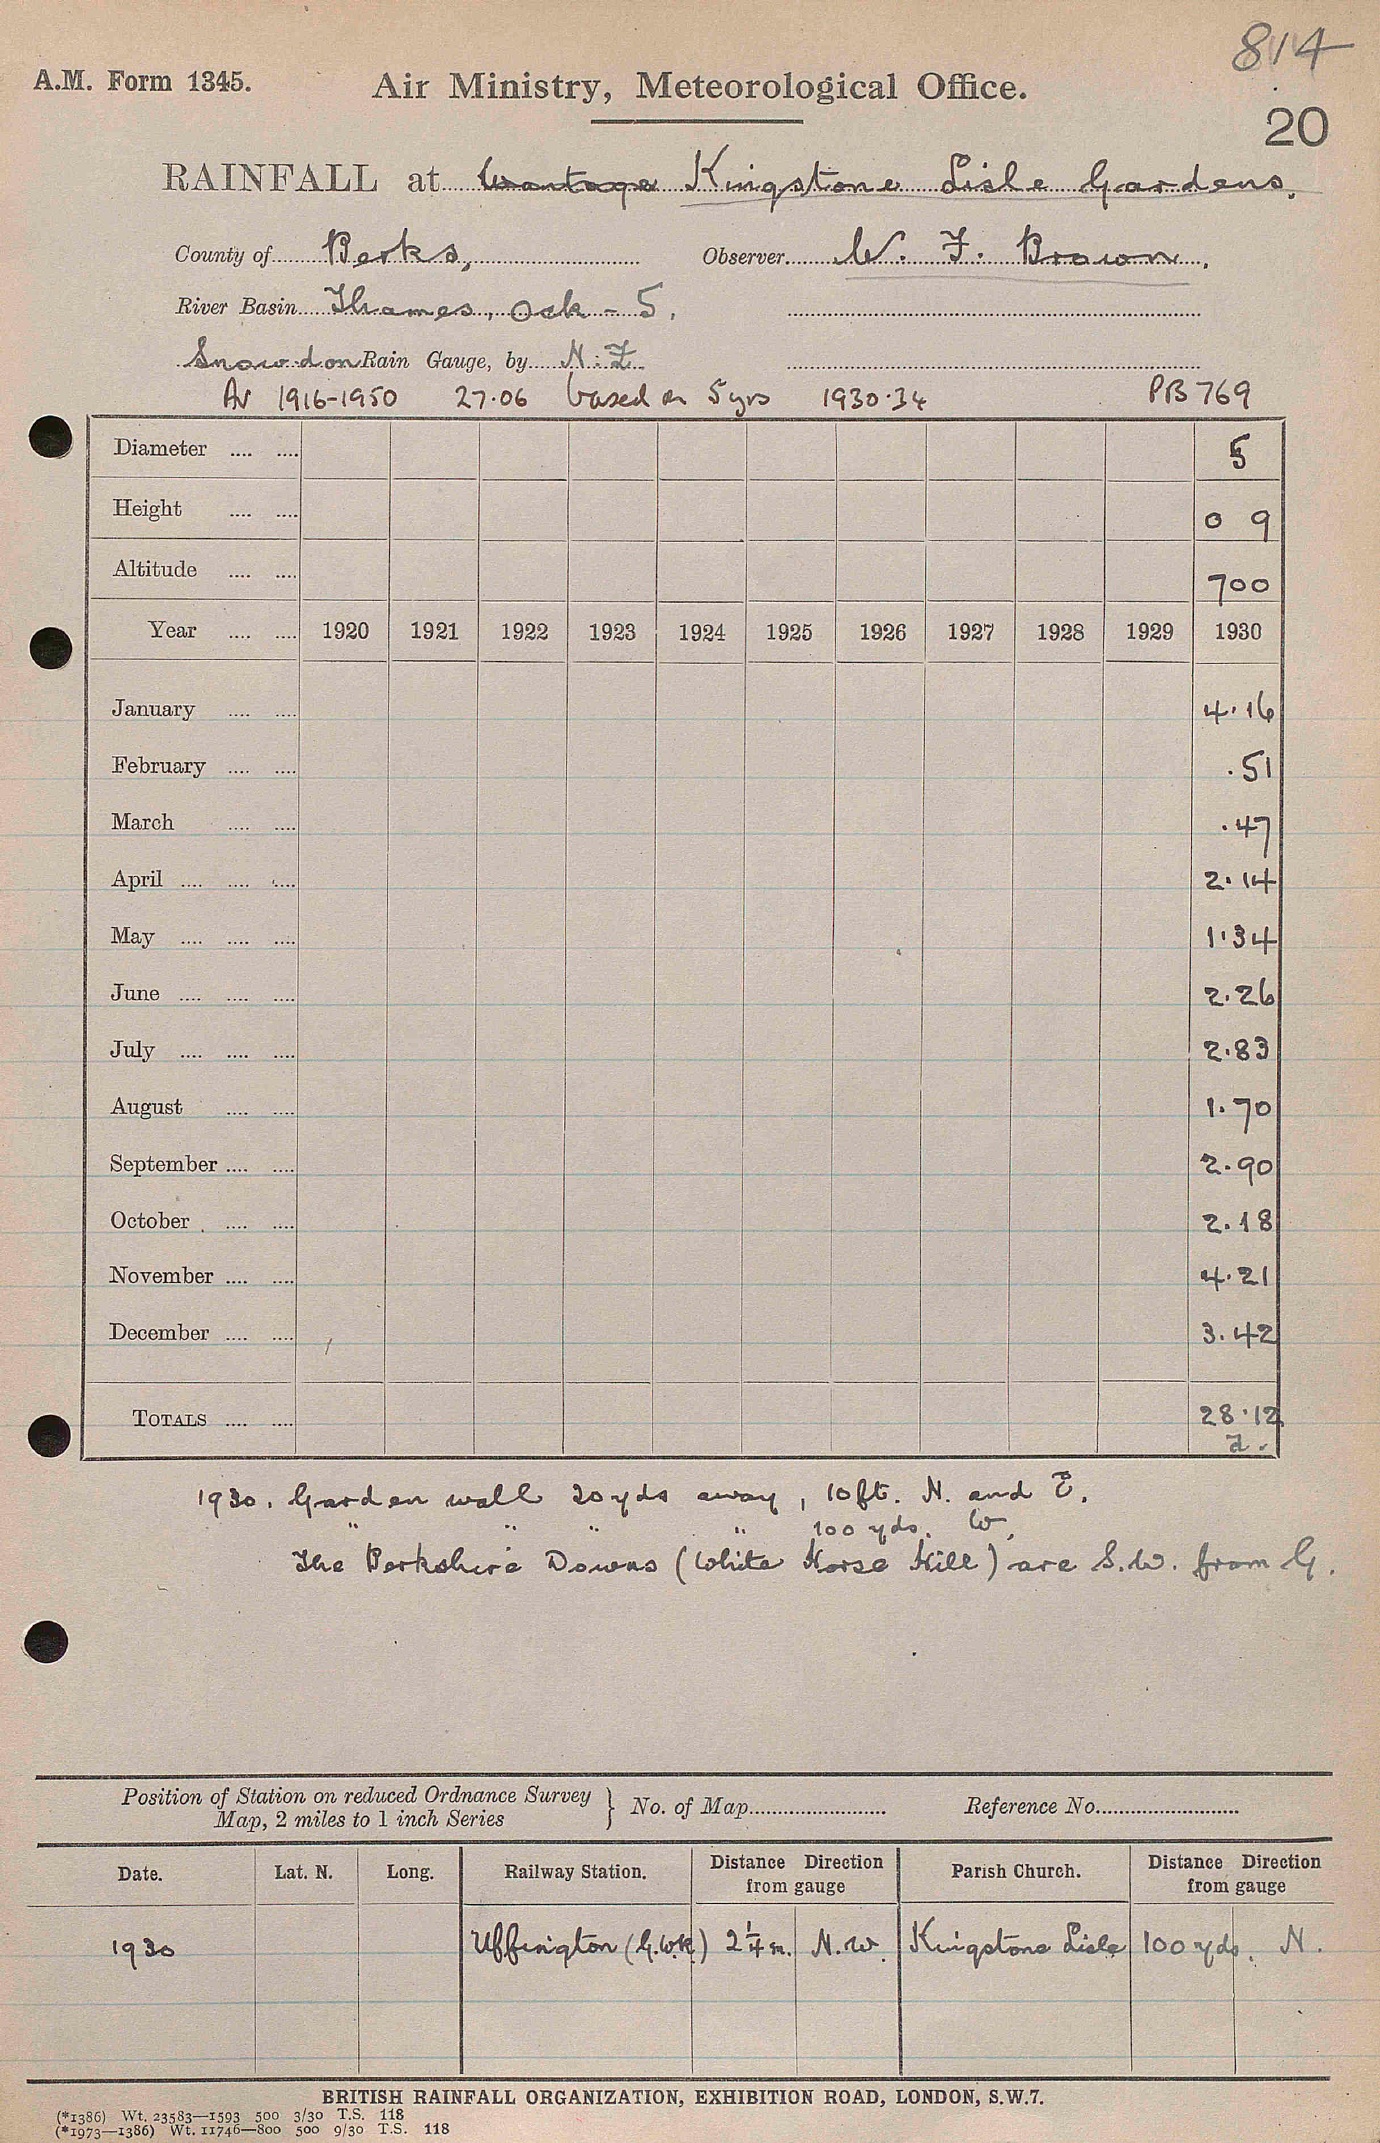 814
A.M. Form 1345. Air Ministry, Meteorological Office.
20
RAINFALL at Wantage Kingstone Lisle Gardens.
County of Berks, Observer W. F. Brown.
River Basin Thames, Ock - 5.
Snowdon Rain Gauge, by N. Z.
Av 1916-1950 27.06 based on 5 yrs 1930-34 PB 769
Diameter .... .... 5
Height .... .... 0 9
Altitude .... .... 700
Year .... .... 1920 1921 1922 1923 1924 1925 1926 1927 1928 1929 1930
January .... .... 4.16
February .... .... .51
March .... .... .47
April .... .... .... 2.14
May .... .... .... 1.34
June .... .... .... 2.26
July .... .... .... 2.83
August .... .... 1.70
September .... .... 2.90
October .... .... 2.18
November .... .... 4.21
December .... .... 3.42
TOTALS .... .... 28.12
1930. Garden wall 20 yds away, 10 ft. N. and E.
" " " " 100 yds. W.
The Berkshire Downs (White Horse Hill) are S.W. from G.
Position of Station on reduced Ordnance Survey
Map, 2 miles to 1 inch Series } No. of Map.......... Reference No..........
Date. Lat. N. Long. Railway Station. Distance Direction from gauge Parish Church. Distance Direction from gauge
1930 Uffington (G.W.R.) 2 1/4 m. N.W. Kingstone Lisle 100 yds. N.
BRITISH RAINFALL ORGANIZATION, EXHIBITION ROAD, LONDON, S.W.7.
(*1386) Wt. 23583—1593 500 3/30 T.S. 118
(*1973—1386) Wt. 11746—800 500 9/30 T.S. 118